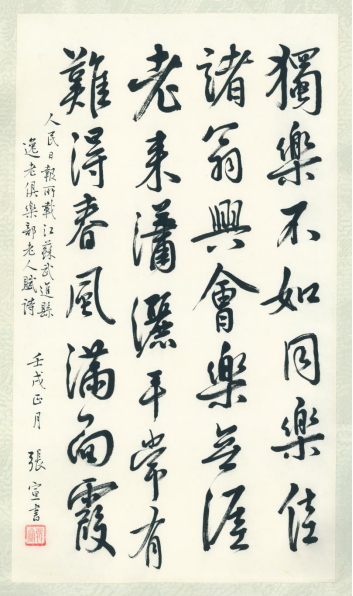 獨樂不如同樂佳
諸翁興會樂無涯
老來瀟灑平常有
難得春風滿面霞
人民日報所載江蘇武進縣
逸老俱樂部老人賦詩
壬戌正月 張宣書